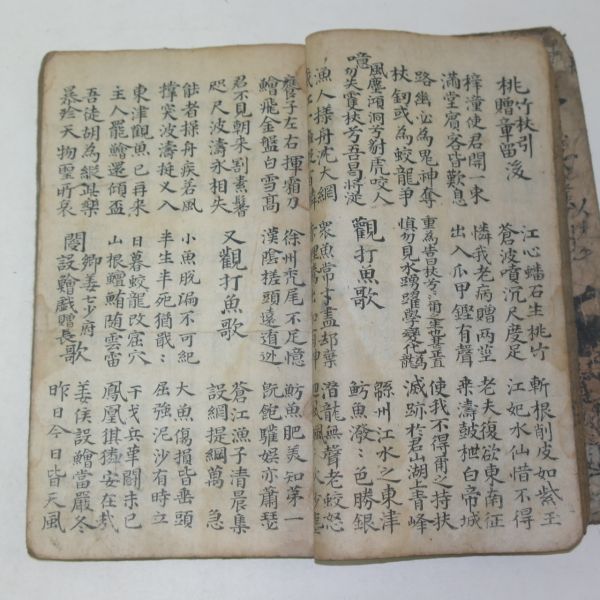 桃竹杖引
贈章留後
江心蟠石生桃竹
蒼波噴沉尺度足
斬根削皮如紫玉
江妃水仙惜不得
梓潼使君開一束
滿堂賓客皆歎息
憐我老病贈两莖
出入爪甲鏗有聲
老夫復欲東南征
乘濤鼓枻白帝城
路幽必為鬼神奪
杖釼或為蛟龍爭
重為告曰杖兮〻爾之生也甚正直
慎勿見水踴躍學變化龍
使我不得爾之持扶
滅跡於君山湖上青峰
噫
風塵澒洞兮豺虎咬人
忽失雙杖兮吾曷將從
觀打魚歌
綿州江水之東津
魴魚潑〻色勝銀
漁人樣舟沈大網
衆魚常才盡却棄
潛龍無聲老蛟怒
饔子左右揮霜刀
鱠飛金盤白雪高
徐州禿尾不足憶
漢陰槎頭遠遁迯
魴魚肥美知第一
既飽驩娛亦蕭瑟
君不見朝來割素鬐
咫尺波濤永相失
又觀打魚歌
蒼江漁子清晨集
設網提綱萬 急
能者操舟疾若風
撑突波濤挺叉入
小魚脫漏不可紀
半生半死猶戢〻
大魚傷損皆垂頭
屈強泥沙有時立
東津觀魚已再來
主人罷鱠還傾盃
日暮蛟龍改窟穴
山根鱣鮪隨雲雷
干戈兵革鬪未已
鳳凰猉獜安在哉
吾徒胡為縱此樂
暴殄天物聖所哀
閿鄉姜七少府設鱠戲贈長歌
姜侯設鱠當嚴冬
昨日今日皆天風